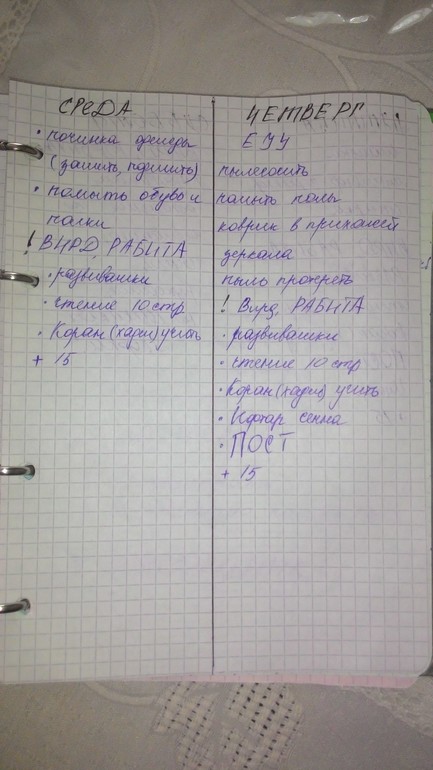 СРЕДА
• починка одежды
(зашить, подшить)
• помыть обувь и
полки
! ВИРД, РАБИТА
• развивашки
• чтение 10 стр
• Коран (хадис) учить
+ 15
ЧЕТВЕРГ
пылесосить
помыть полы
коврик в прихожей
зеркала
пыль протереть
! Вирд, РАБИТА
• развивашки
• чтение 10 стр
• Коран (хадис) учить
• Ифтар
• ПОСТ
+ 15